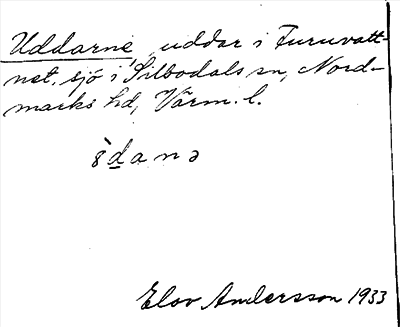 Uddarne, uddar i Furuvatt-
net, sjö i Silbodals sn, Nord-
marks hd, Värm. l.
ŏ̀d̲anə
Elov Andersson 1933